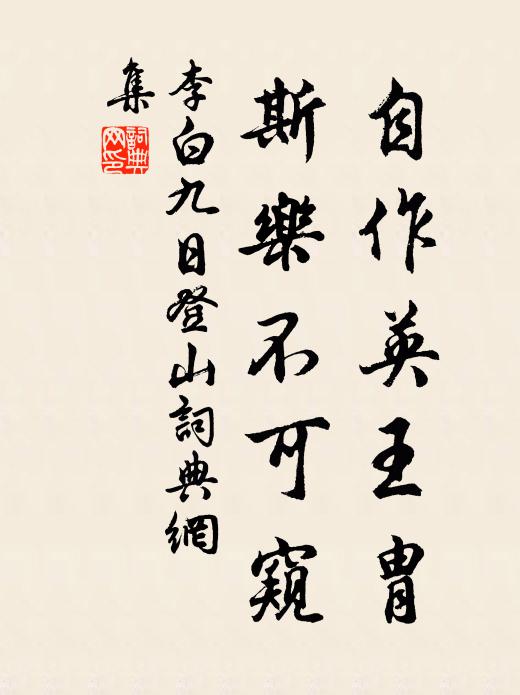 自作英王胄
斯樂不可窺
李白九日登山詞典網
集
詞典
网印